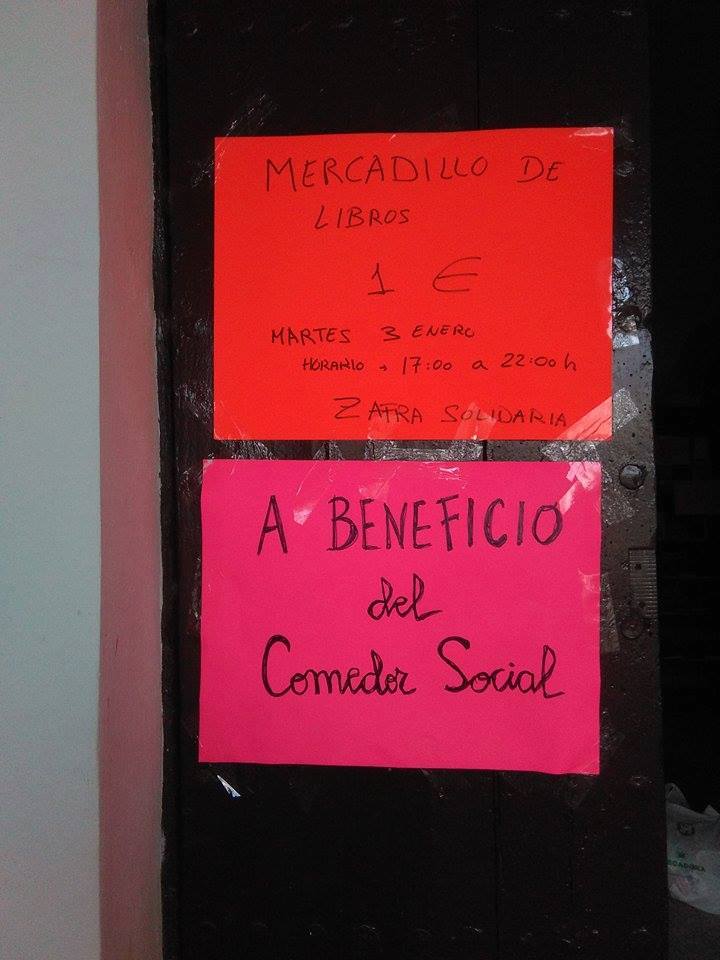 MERCADILLO DE
LIBROS
1 €
MARTES 3 ENERO
HORARIO → 17:00 a 22:00 h
ZAFRA SOLIDARIA
A BENEFICIO
del
Comedor Social